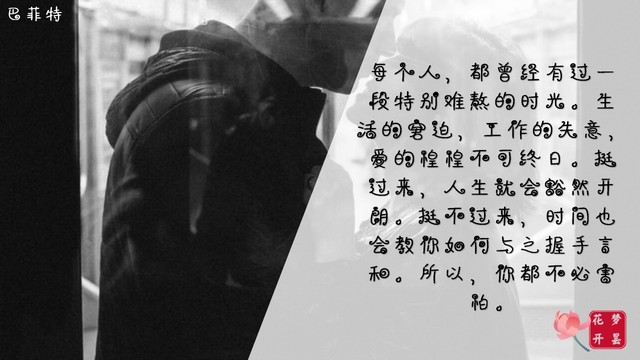 巴菲特
每个人，都曾经有过一
段特别难熬的时光。生
活的窘迫，工作的失意，
爱的惶惶不可终日。挺
过来，人生就会豁然开
朗。挺不过来，时间也
会教你如何与之握手言
和。所以，你都不必害
怕。
梦昙
花开